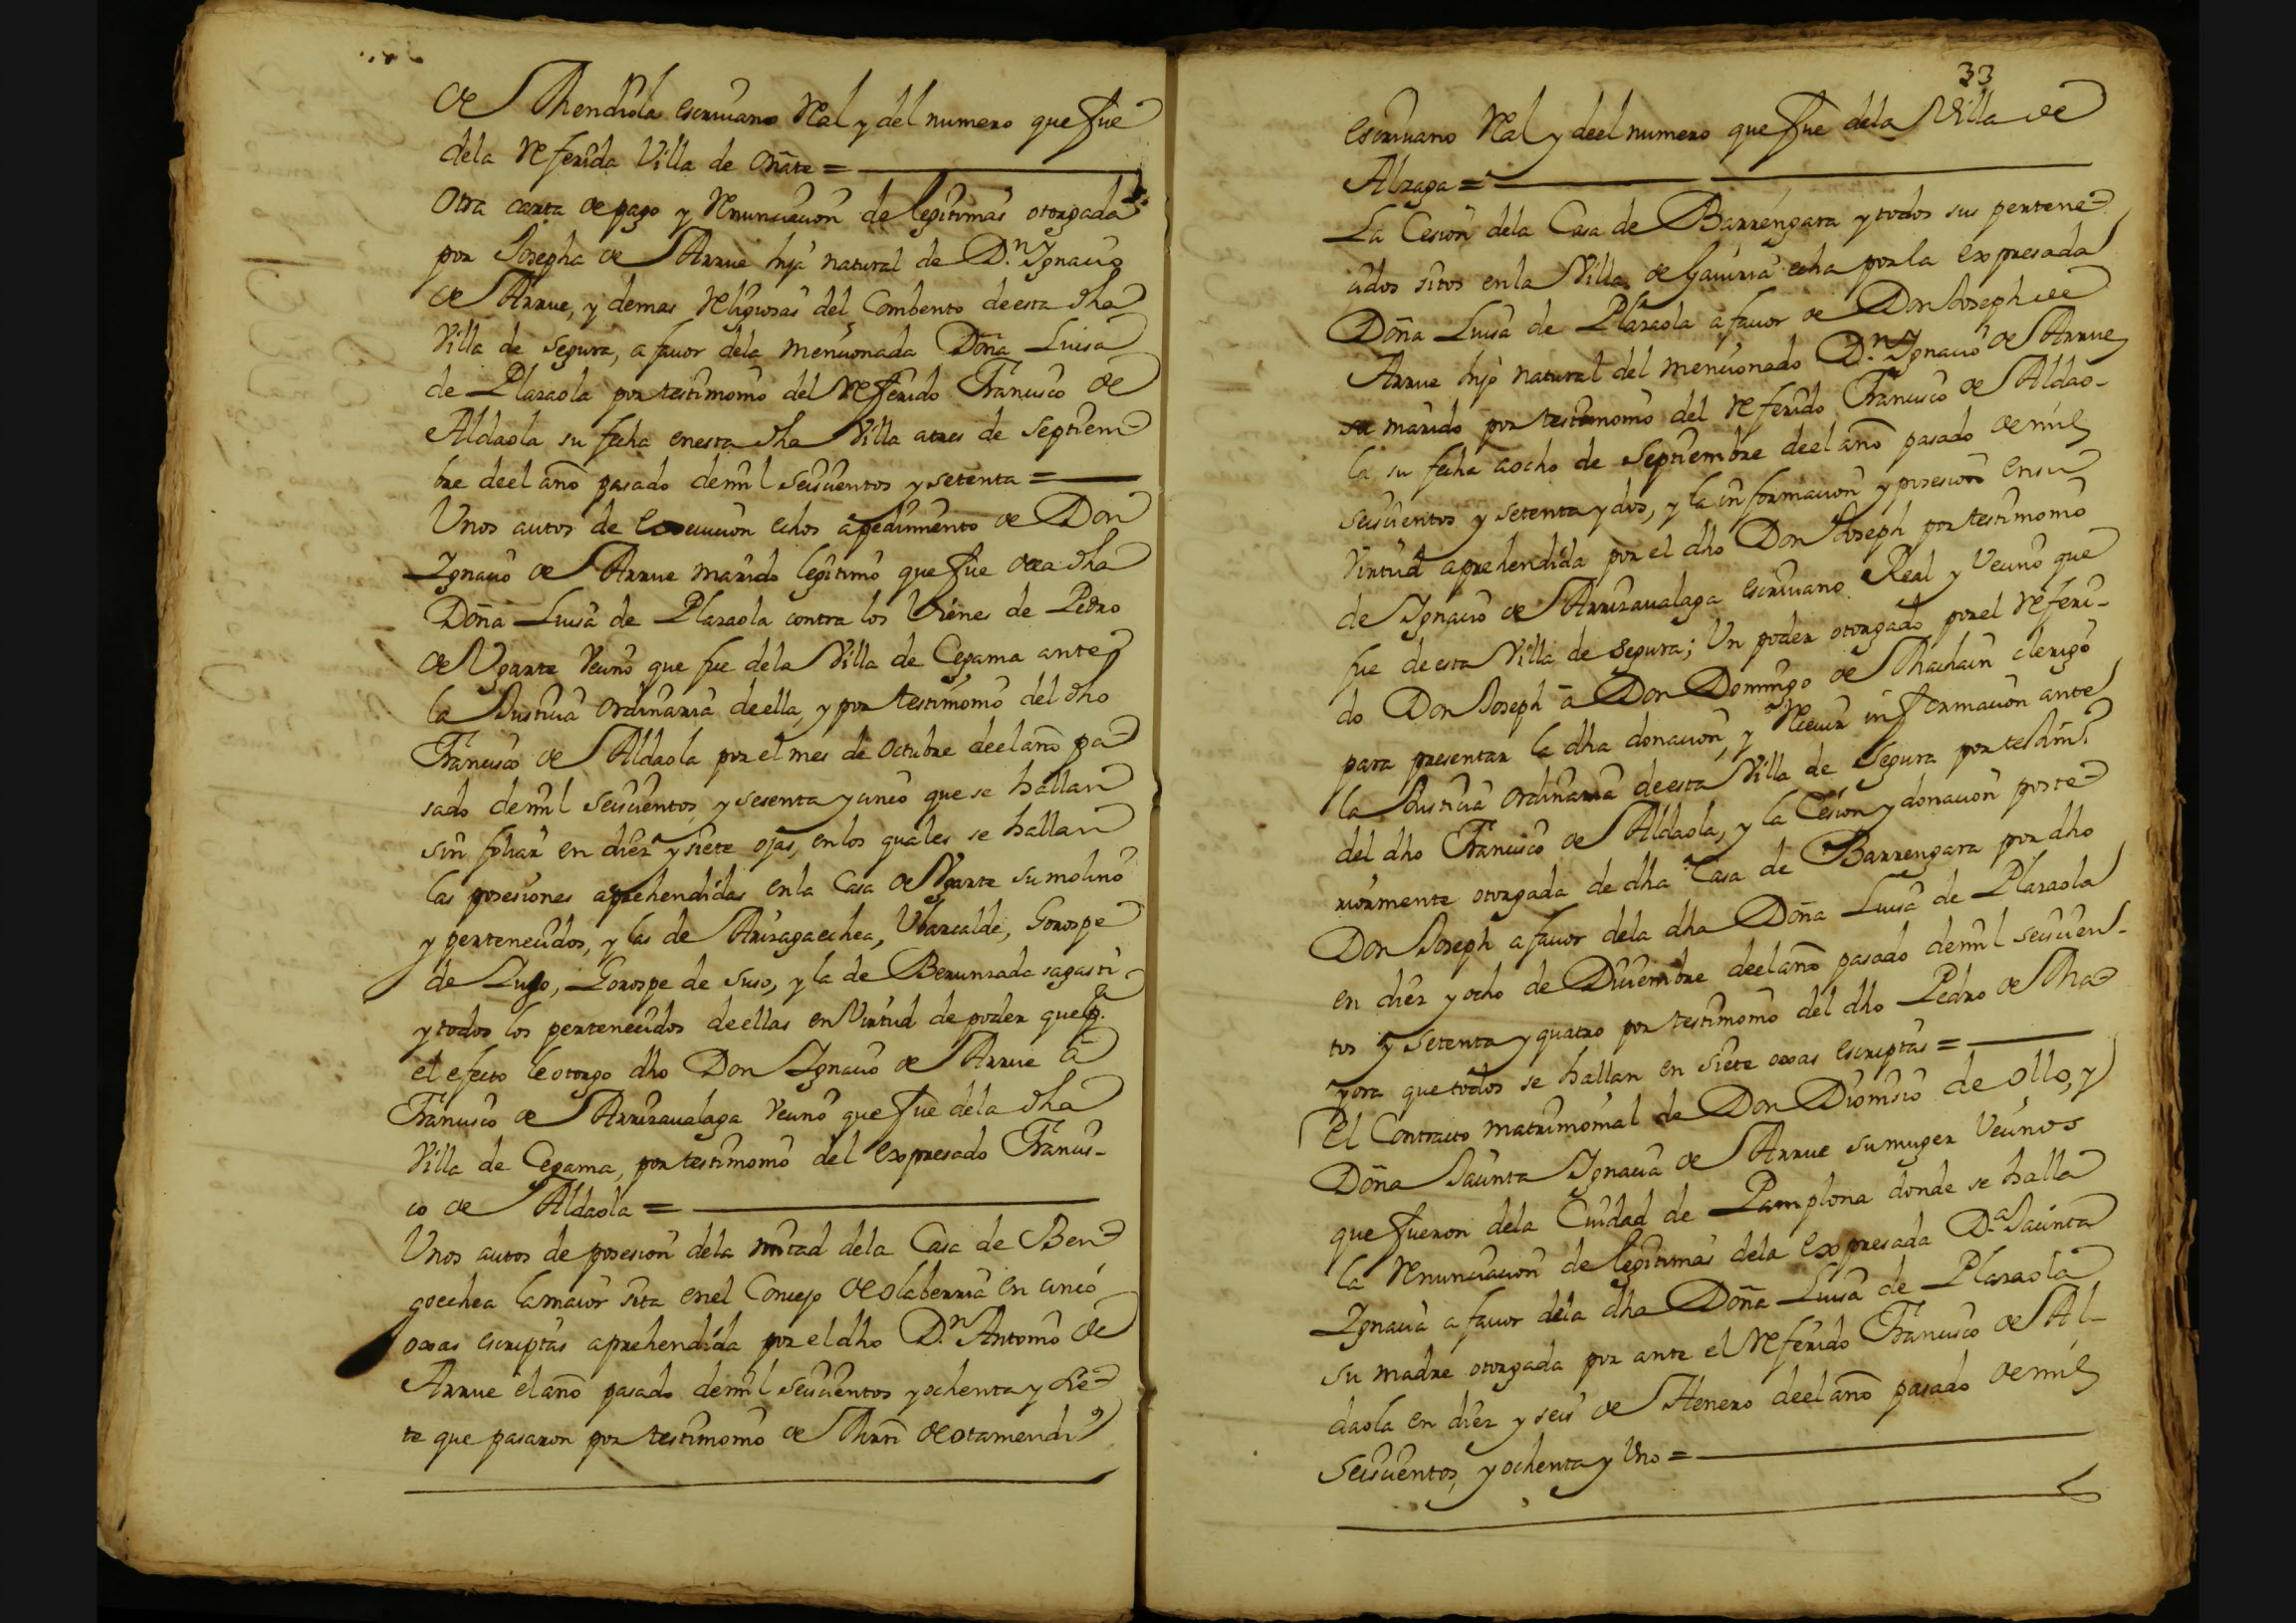 de Mendiola escriuano Real y del numero que fue
dela Referida Villa de oñate =
Otra carta de pago y Renunciacion de legitimas otorgada
por Josepha de Arrue hija natural de D.n Ygnacio
de Arrue, y demas Religiosas del Combento de esta dha
Villa de Segura, a fauor dela mencionada Doña Luisa
de Plazaola por testimonio del Referido Francisco de
Aldaola su fecha en esta dha Villa a tres de Septiem
bre de el año pasado de mil seiscientos y setenta =
Unos autos de execucion echos a pedimento de Don
Ygnacio de Arrue marido legitimo que fue de la dha
Doña Luisa de Plazaola contra los Vienes de Pedro
de Vgarte Vecino que fue dela Villa de Cegama ante
la Justicia ordinaria de ella, y por testimonio del dho
Francisco de Aldaola por el mes de octubre de el año pa
sado de mil seiscientos, y sesenta y cinco que se hallan
sin foliar en diez y siete ojas, en los quales se hallan
las posesiones aprehendidas en la Casa de Vgarte su molino
y pertenecidos, y las de Arizagaechea, Vbarcalde, Gorospe
de Suso, Gorospe de suso, y la de Berunzada sagasti
y todos los pertenecidos de ellas en Virtud de poder que p.
el efecto le otorgo dho Don Ygnacio de Arrue á
Francisco de Arrizaualaga Vecino que fue dela dha
Villa de Cegama, por testimonio del expresado Francis-
co de Aldaola =
Unos autos de posesion dela mitad dela Casa de Ben
goechea la maior sita en el Concejo de olaberria en cinco
oxas escriptas aprehendida por el dho D.n Antonio de
Arrue el año pasado de mil seiscientos y ochenta y sie
te que pasaron por testimonio de Mrñ de otamendi
33
escriuano Real y de el numero que fue dela Villa de
Alzaga =
La Cesion dela Casa de Barrengara y todos sus pertene
cidos sitos en la Villa de Gauiria echa por la expresada
Doña Luisa de Plazaola a fauor de Don Joseph de
Arrue hijo natural del mencionado D.n Ygnacio de Arrue
su marido por testimonio del referido Francisco de Aldao-
la su fecha a ocho de Septiembre de el año pasado de mil
seiscientos y setenta y dos, y la informacion y posesion en su
Virtud aprehendida por el dho Don Joseph por testimonio
de Ygnacio de Arrizaualaga escriuano Real y Vecino que
fue de esta Villa de Segura; Un poder otorgado por el referi-
do Don Joseph á Don Domingo de Machain clerigo
para presentar la dha donacion, y Reciuir informacion ante
la Justicia ordinaria de esta Villa de Segura por testim.o
del dho Francisco de Aldaola, y la Cesion y donacion poste
riormente otorgada de dha Casa de Barrengara por dho
Don Joseph a fauor dela dha Doña Luisa de Plazaola
en diez y ocho de Diciembre de el año pasado de mil seiscien-
tos y setenta y quatro por testimonio del dho Pedro de Ma
yora que todos se hallan en siete oxas escriptas =
El Contracto matrimonial de Don Dionisio de ollo, y
Doña Jacinta Ygnacia de Arrue su muger Vecinos
que fueron dela Ciudad de Pamplona donde se halla
la Renunciacion de legitimas dela expresada D.a Jacinta
Ygnacia a fauor dela dha Doña Luisa de Plazaola
su madre otorgada por ante el Referido Francisco de Al-
daola en diez y seis de Henero de el año pasado de mil
Seiscientos, y ochenta y Uno =